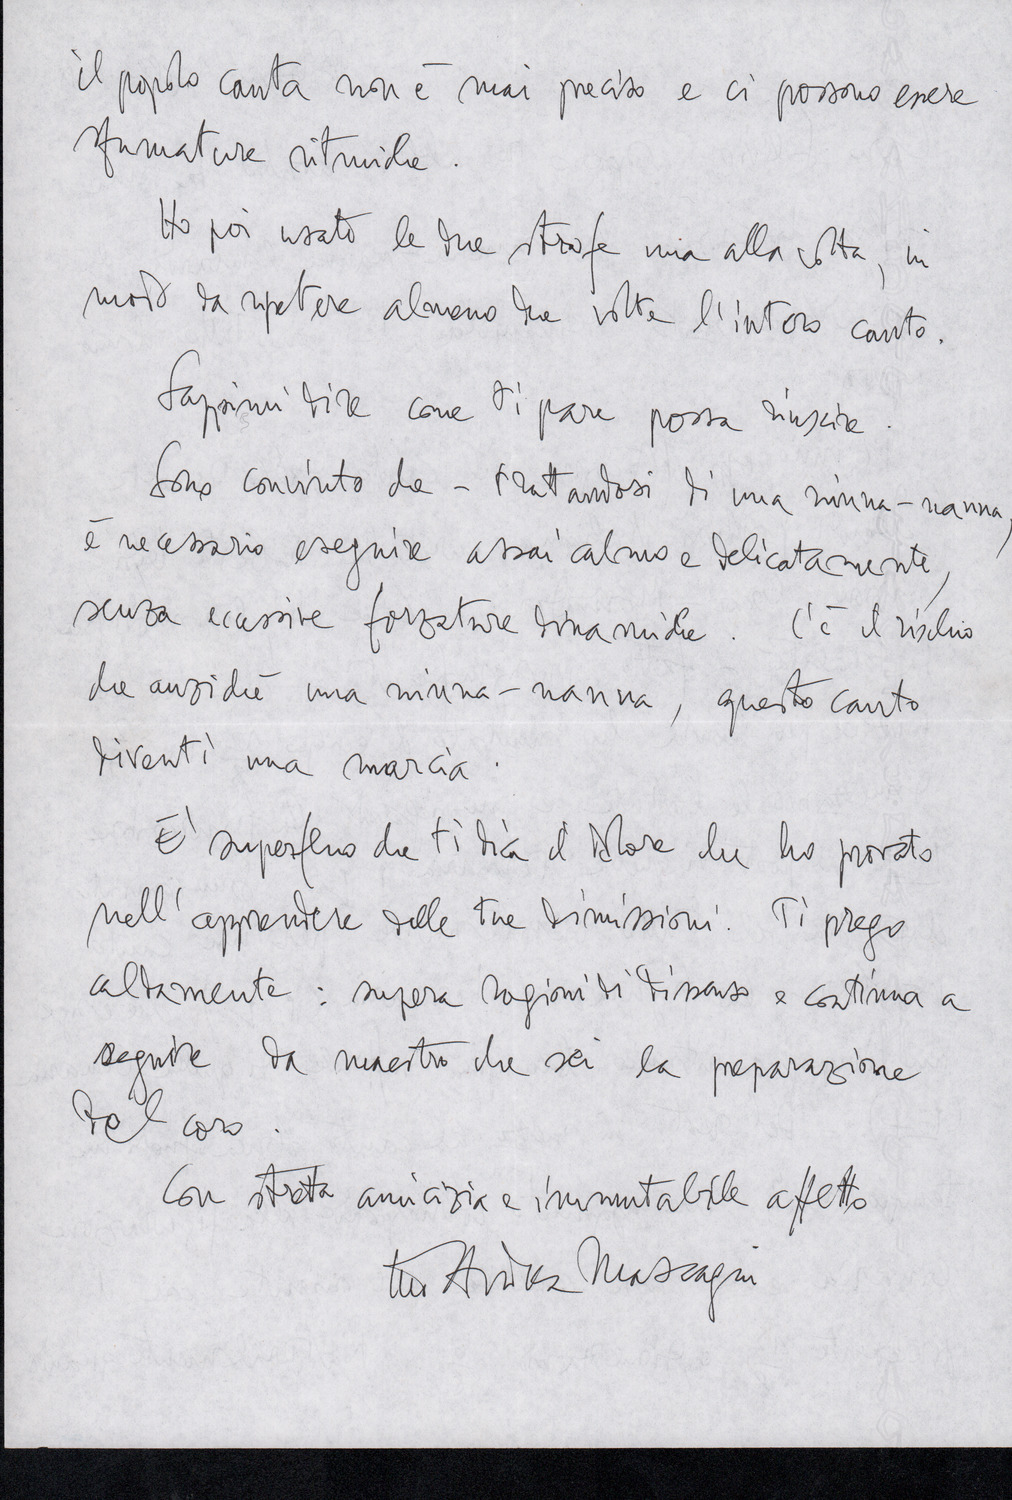 il popolo canta non è mai preciso e ci possono essere
sfumature ritmiche.
Ho poi usato le due strofe una alla volta, in
modo da ripetere almeno due volte l'intero canto.
Sappimi dire come ti pare possa riuscire.
Sono convinto che – trattandosi di una ninna-nanna,
è necessario eseguire assai calmo e delicatamente,
senza eccessive forzature dinamiche. C'è il rischio
che anziché una ninna-nanna, questo canto
diventi una marcia.
E' superfluo che ti dica il dolore che ho provato
nell'apprendere delle tue dimissioni. Ti prego
caldamente: supera ragioni di dissenso e continua a
seguire da maestro che sei la preparazione
del coro.
Con stretta amicizia e immutabile affetto
tuo Andrea Mascagni